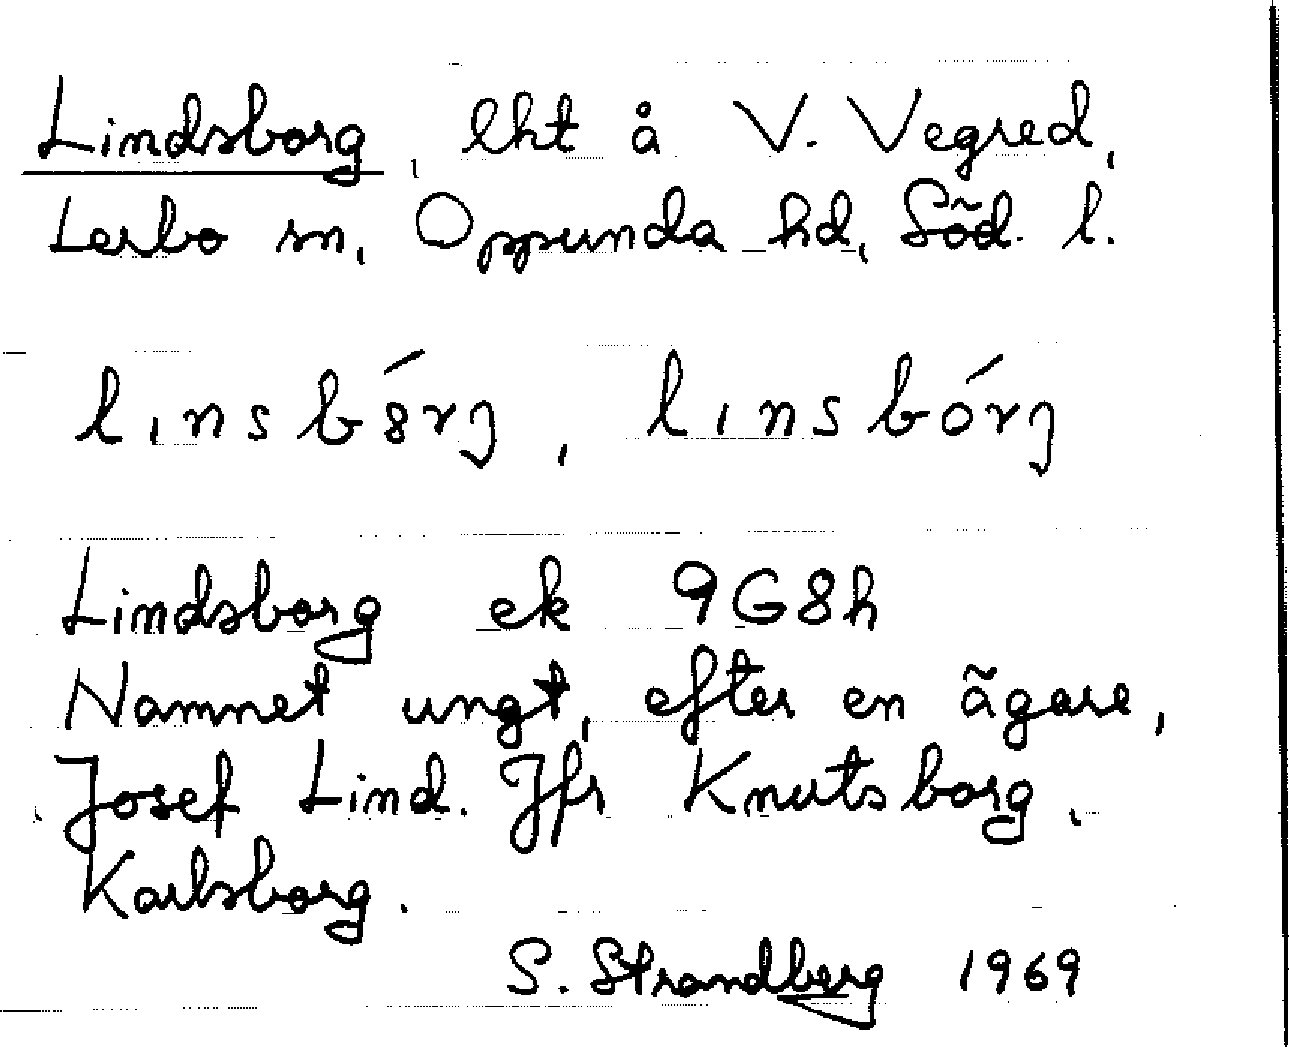 Lindsborg, lht å V. Vegred,
Lerbo sn, Oppunda hd, Söd. l.
lınsb8́rȷ, lınsbórȷ
Lindsborg ek 9G8h
Namnet ungt, efter en ägare,
Josef Lind. Jfr Knutsborg,
Karlsborg.
S. Strandberg 1969